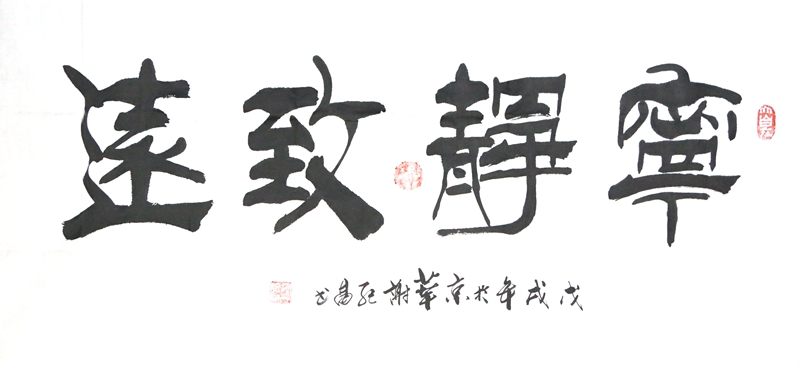 寧靜致遠
戊戌年於京華謝記昌書